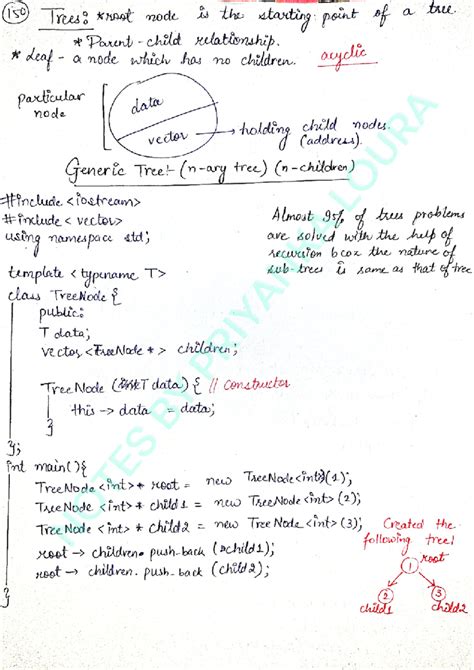 150 Trees: * root node is the starting point of a tree.
* Parent-child relationship.
* Leaf - a node which has no children. acyclic
particular node
data
vector → holding child nodes. (address).
Generic Tree:- (n-ary tree) (n-children)
#include <iostream>
#include <vector>
using namespace std;
Almost 95% of trees problems
are solved with the help of
recursion bcoz the nature of
sub-trees is same as that of tree
template <typename T>
class TreeNode {
public:
T data;
vector<TreeNode*> children;
TreeNode (T data) { // constructor
this -> data = data;
}
};
int main(){
TreeNode<int>* root = new TreeNode<int>(1);
TreeNode <int>* child1 = new TreeNode<int>(2);
TreeNode <int>* child2 = new TreeNode<int>(3);
root -> children.push-back (child1);
root -> children.push-back (child2);
}
Created the
following tree!
root
1
2 3
child1 child2
NOTES BY PRIYANKA LOURA